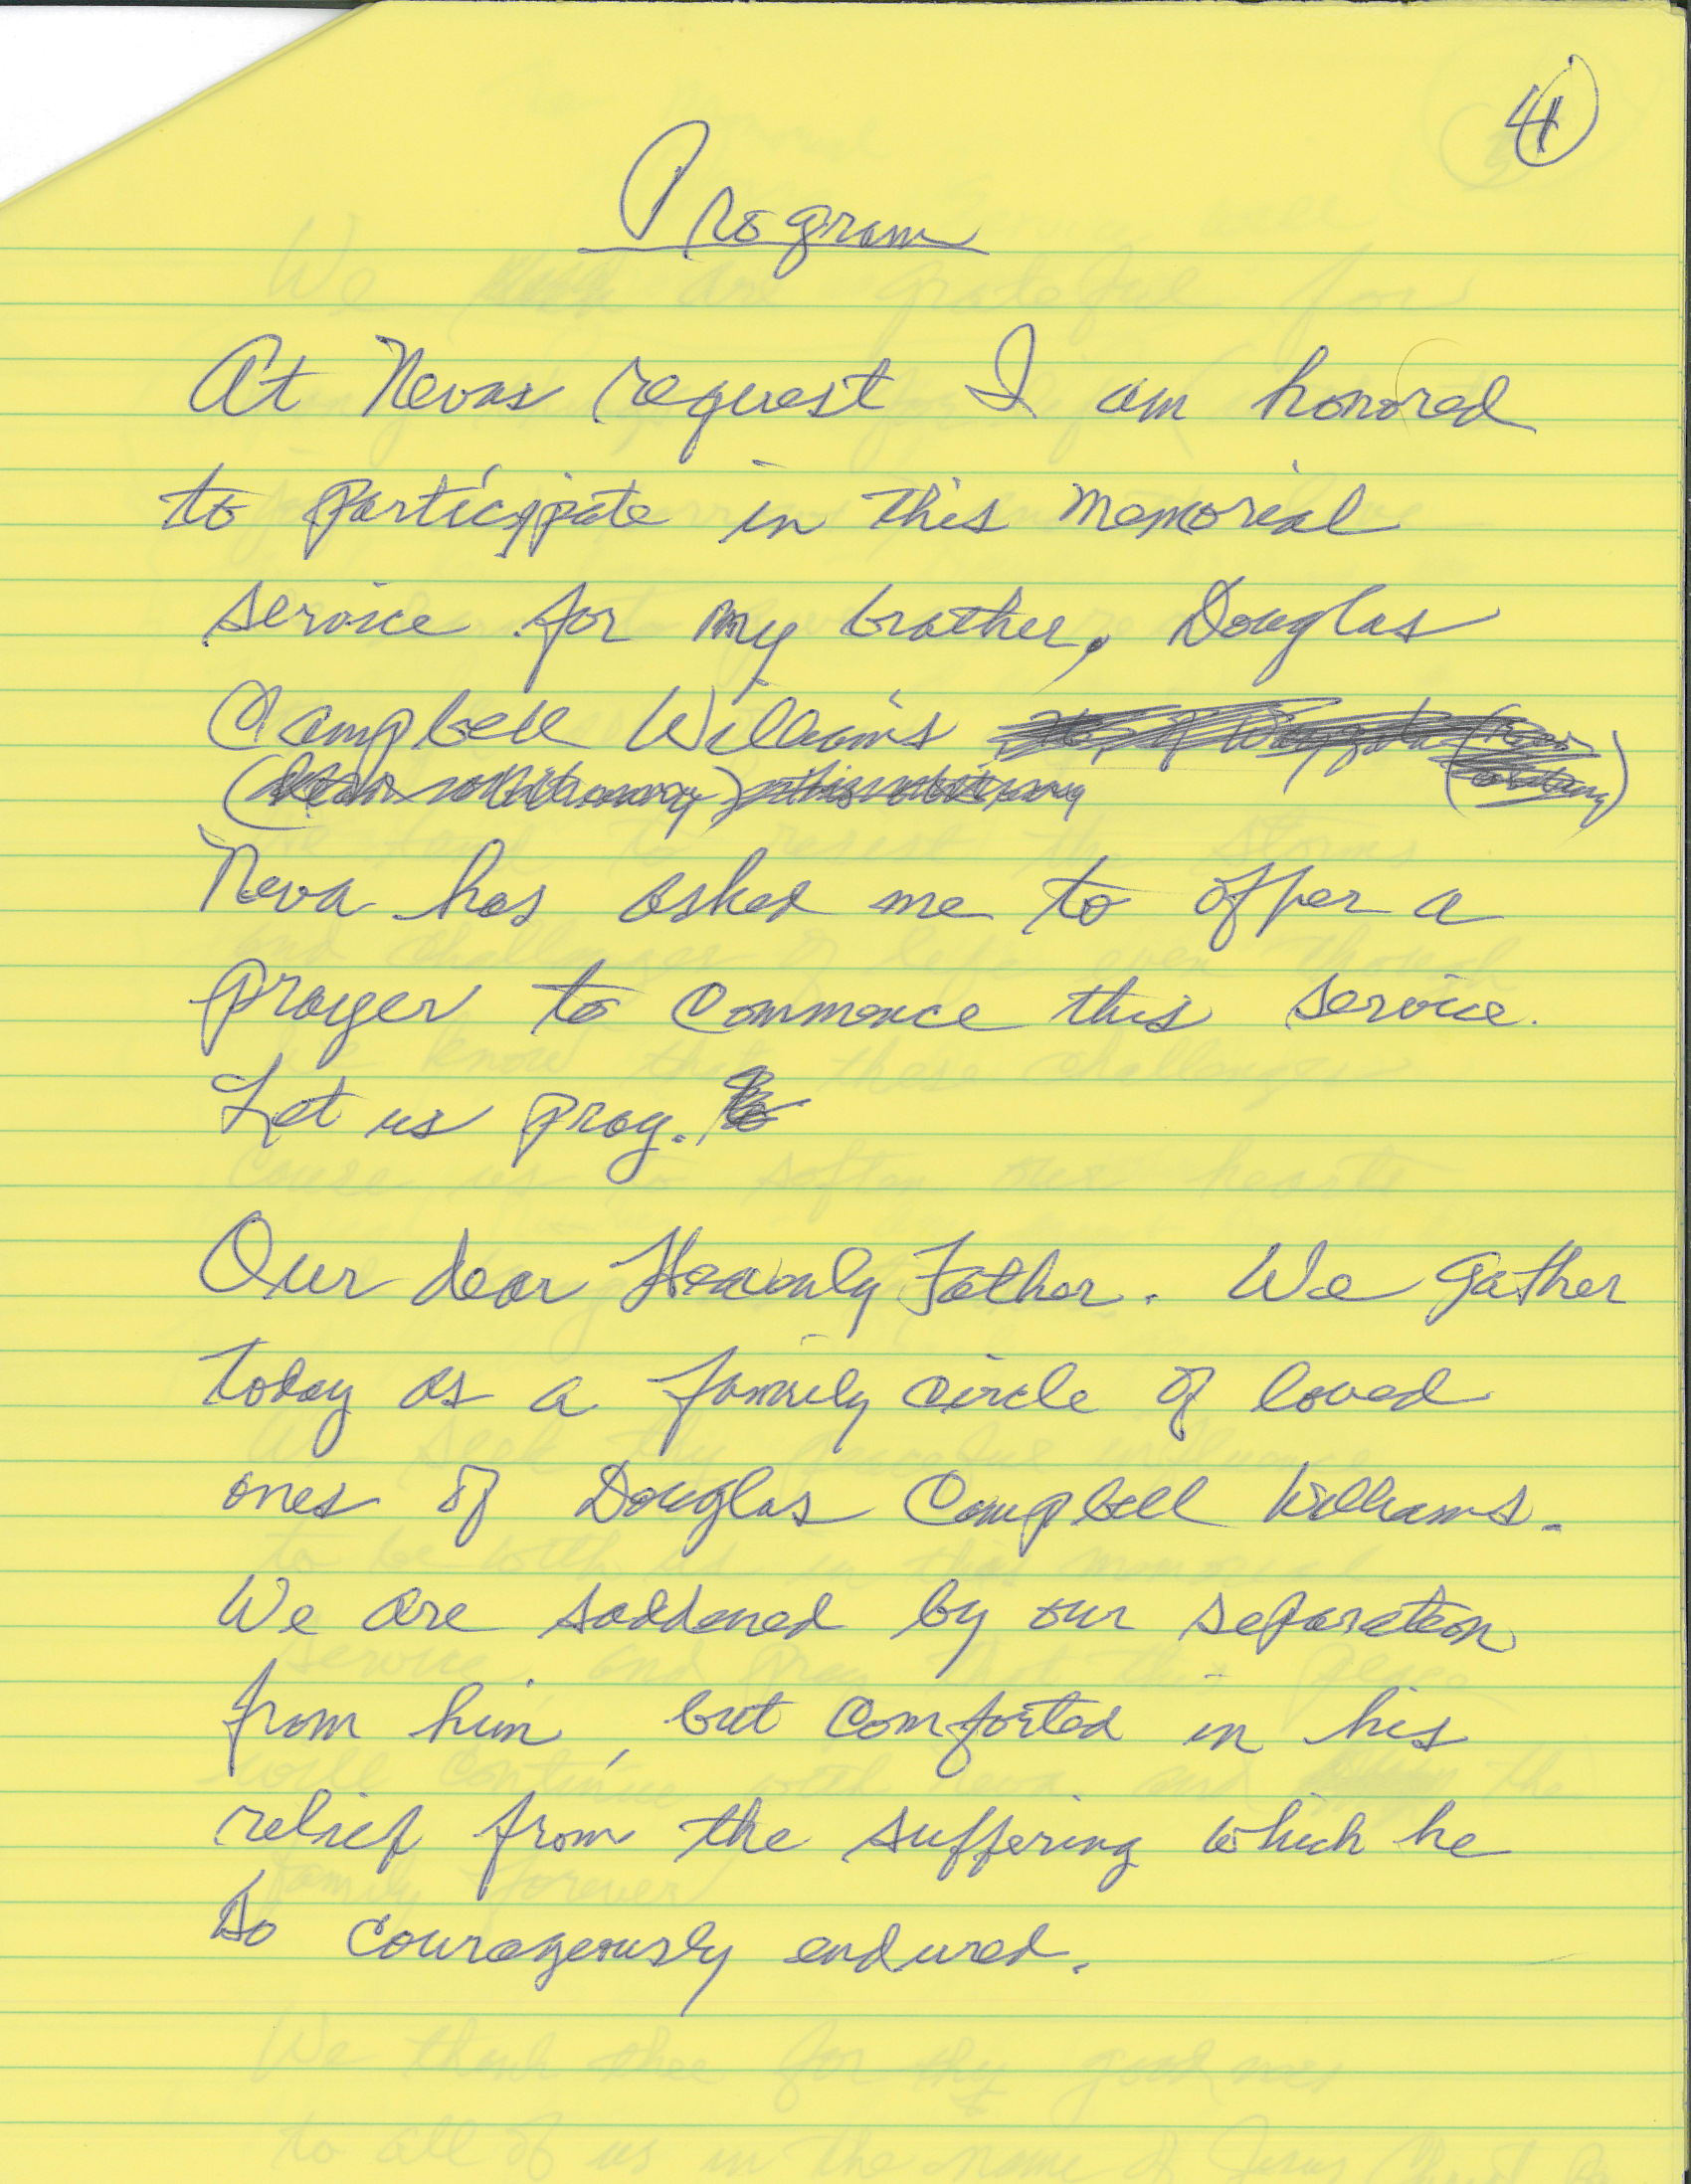 Program
At Nevas request I am honored
to participate in this memorial
service for my brother, Douglas
Campbell Williams
Neva has asked me to offer a
prayer to commence this service.
Let us pray.
Our dear Heavenly Father. We gather
today as a family circle of loved
ones of Douglas Campbell Williams.
We are saddened by our separation
from him, but comforted in his
relief from the suffering which he
so courageously endured.